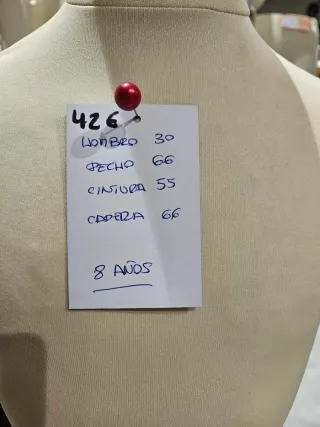 42€
HOMBRO 30
PECHO 66
CINTURA 55
CADERA 66
8 AÑOS